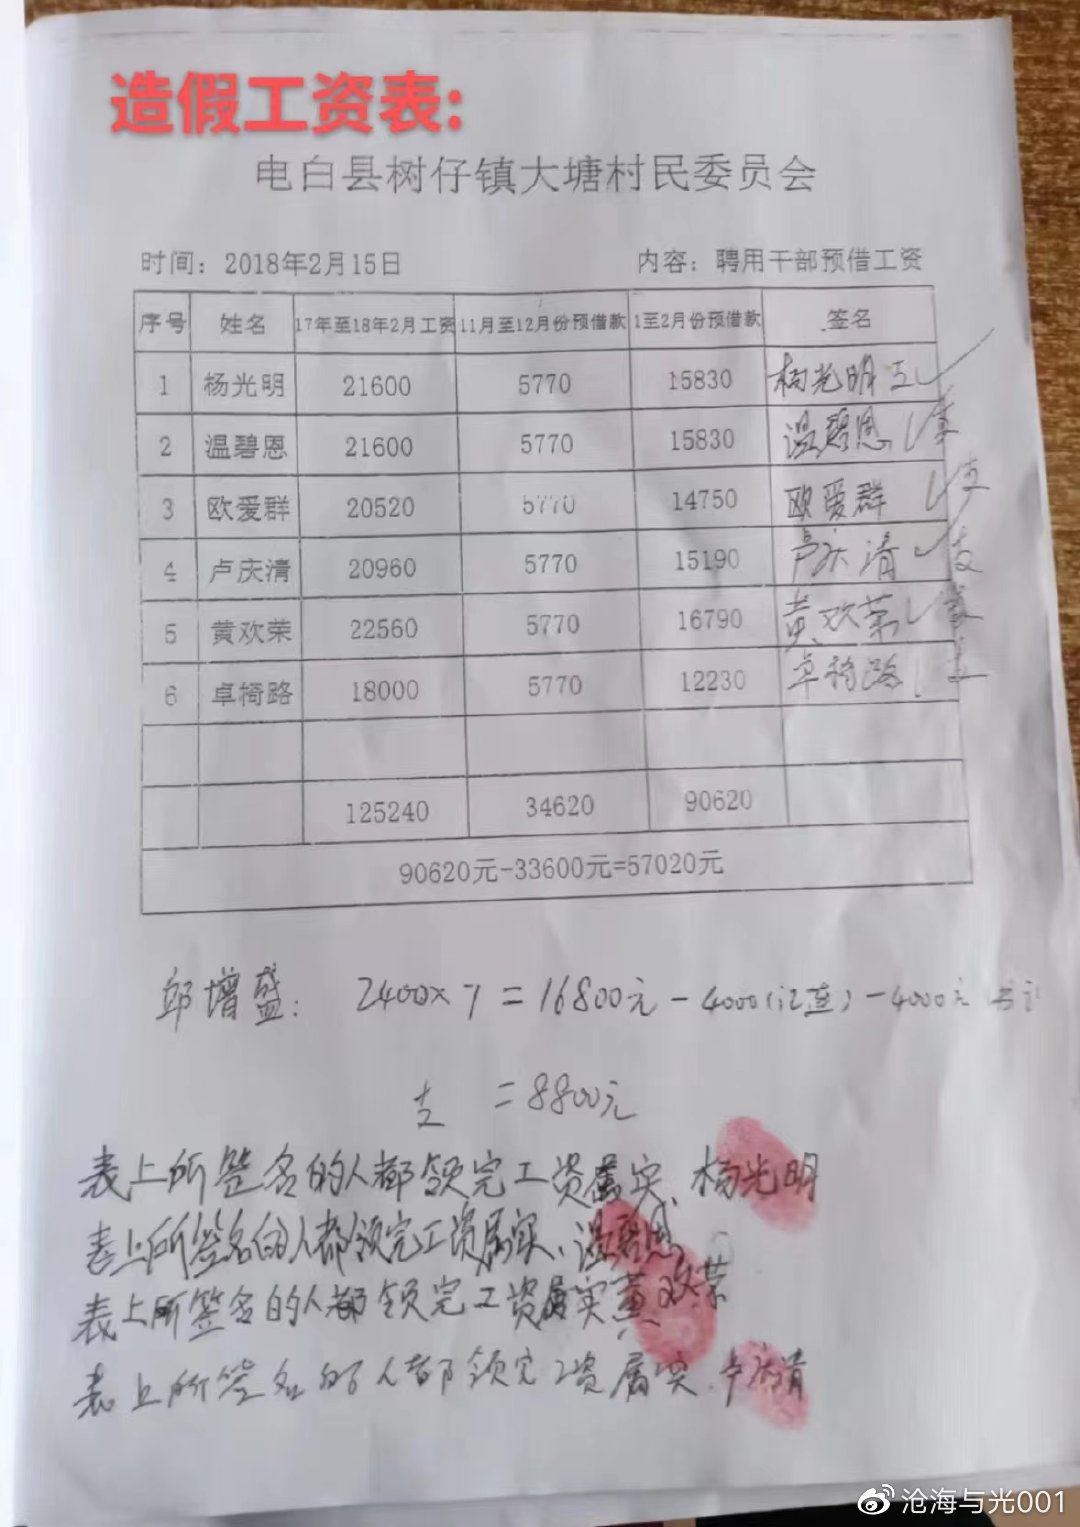 造假工资表:
电白县树仔镇大塘村民委员会
时间：2018年2月15日 内容：聘用干部预借工资
序号 姓名 17年至18年2月工资 11月至12月份预借款 1至2月份预借款 签名
1 杨光明 21600 5770 15830 杨光明 支
2 温碧恩 21600 5770 15830 温碧恩
3 欧爱群 20520 5770 14750 欧爱群 支
4 卢庆清 20960 5770 15190 卢庆清 支
5 黄欢荣 22560 5770 16790 黄欢荣
6 卓椅路 18000 5770 12230 卓椅路 支
125240 34620 90620
90620元-33600元=57020元
邱增盛： 2400×7=16800元-4000(江莲)-4000元
支 =8800元
表上所签名的人都领完工资属实、杨光明
表上所签名的人都领完工资属实、温碧恩
表上所签名的人都领完工资属实黄欢荣
表上所签名的人都领完工资属实.卢庆清
沧海与光001